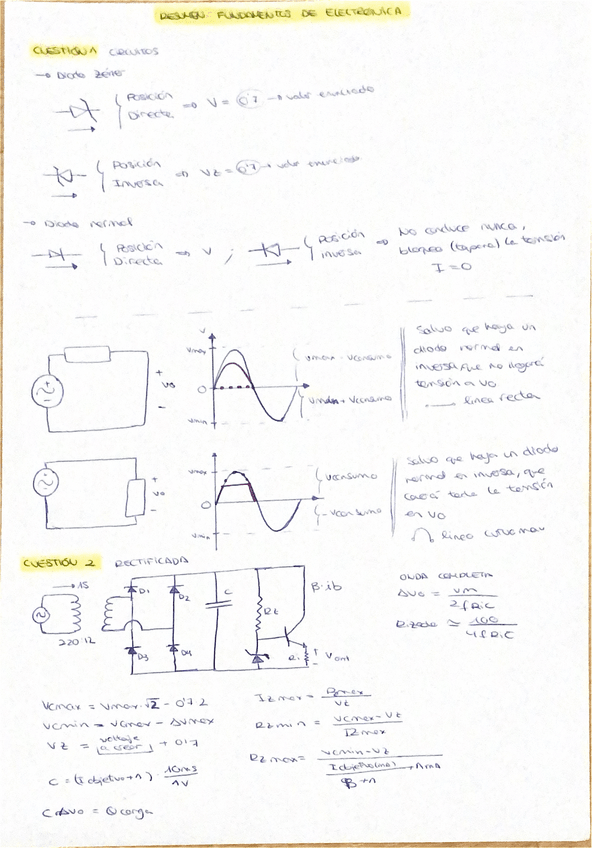 RESUMEN: FUNDAMENTOS DE ELECTRÓNICA
CUESTIÓN 1 CIRCUITOS
→ Diodo zéner
Posición Directa ⇒ V = 0'7 → valor enunciado
Posición Inversa ⇒ Vz = 0'7 → valor enunciado
→ Diodo normal
Posición Directa ⇒ V ; Posición inversa ⇒ No conduce nunca,
bloquea (tapona) la tensión
I = 0
V
Vmax
Vmax - Vconsumo
+
Vo
-
0
Vmax + Vconsumo
Vmin
Salvo que haya un
diodo normal en
inversa que no llegará
tensión a Vo
línea recta
Vmax
Vconsumo
+
Vo
-
0
- Vconsumo
Vmax
Salvo que haya un diodo
normal en inversa, que
caerá toda la tensión
en Vo
línea curva
CUESTIÓN 2 RECTIFICADA
→ 1S
220:12
D1
D2
D3
D4
C
Rz
β·ib
Ri
+
Vout
-
ONDA COMPLETA
ΔVo = Vm / 2fRiC
Rizado ≃ 100 / 4fRiC
Vcmax = Vmax·√2 - 0'7·2
Vcmin = Vcmax - ΔVmax
Vz = voltaje a crear + 0'7
C = (I objetivo + 1) · 10ms / 1V
C·ΔVo = Q carga
Izmax = Pzmax / Vz
Rzmin = Vcmax - Vz / Izmax
Rzmax = Vcmin - Vz / I objetivo(mA) / β + 1 + 1mA